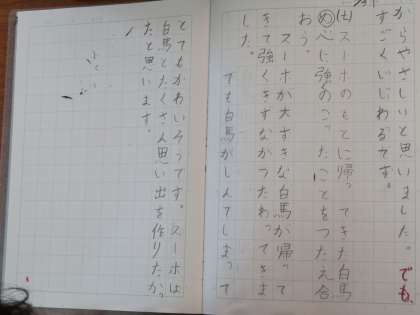 からやさしいと思いました。でも、
すごくいじわるです。
(七)スーホのもとに帰ってきた白馬
め心に強のこったことをつたえ合
おう。
スーホが大すきな白馬が帰って
きて強くきずながつたわってきま
した。
でも白馬がしんてしまって
とてもかわいそうです。スーホは
白馬とたくさん思い出を作りたかっ
たと思います。